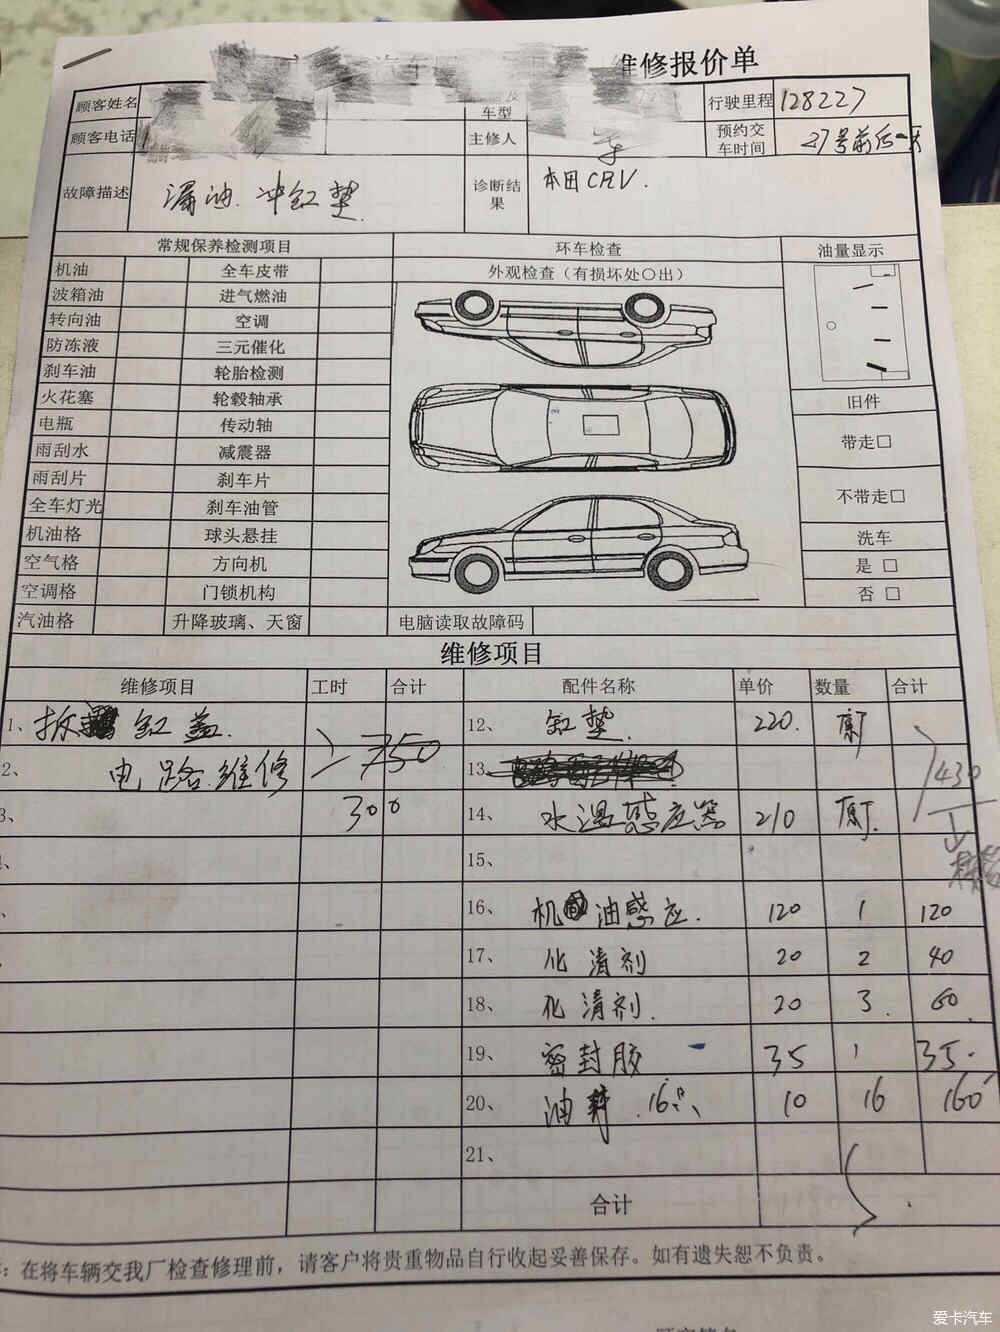 维修报价单
顾客姓名
车型
行驶里程 128227
顾客电话
主修人
预约交车时间 27号前后一天
故障描述 漏油 冲缸垫
诊断结果 本田CRV.
常规保养检测项目 环车检查 油量显示
外观检查（有损坏处〇出）
机油 全车皮带
波箱油 进气燃油
转向油 空调
防冻液 三元催化
刹车油 轮胎检测
火花塞 轮毂轴承
电瓶 传动轴
雨刮水 减震器
雨刮片 刹车片
全车灯光 刹车油管
机油格 球头悬挂
空气格 方向机
空调格 门锁机构
汽油格 升降玻璃、天窗
旧件
带走□
不带走□
洗车
是 □
否 □
电脑读取故障码
维修项目
维修项目 工时 合计 配件名称 单价 数量 合计
1、拆 缸盖 750 12、缸垫 220. 原厂
2、电路维修 13、
3、 300 14、水温感应器 210 原厂. 430
15、
16、机油感应. 120 1 120
17、化清剂 20 2 40
18、化清剂. 20 3. 60.
19、密封胶 35 1 35.
20、油 16只、 10 16 160
21、
合计
：在将车辆交我厂检查修理前，请客户将贵重物品自行收起妥善保存。如有遗失恕不负责。
爱卡汽车